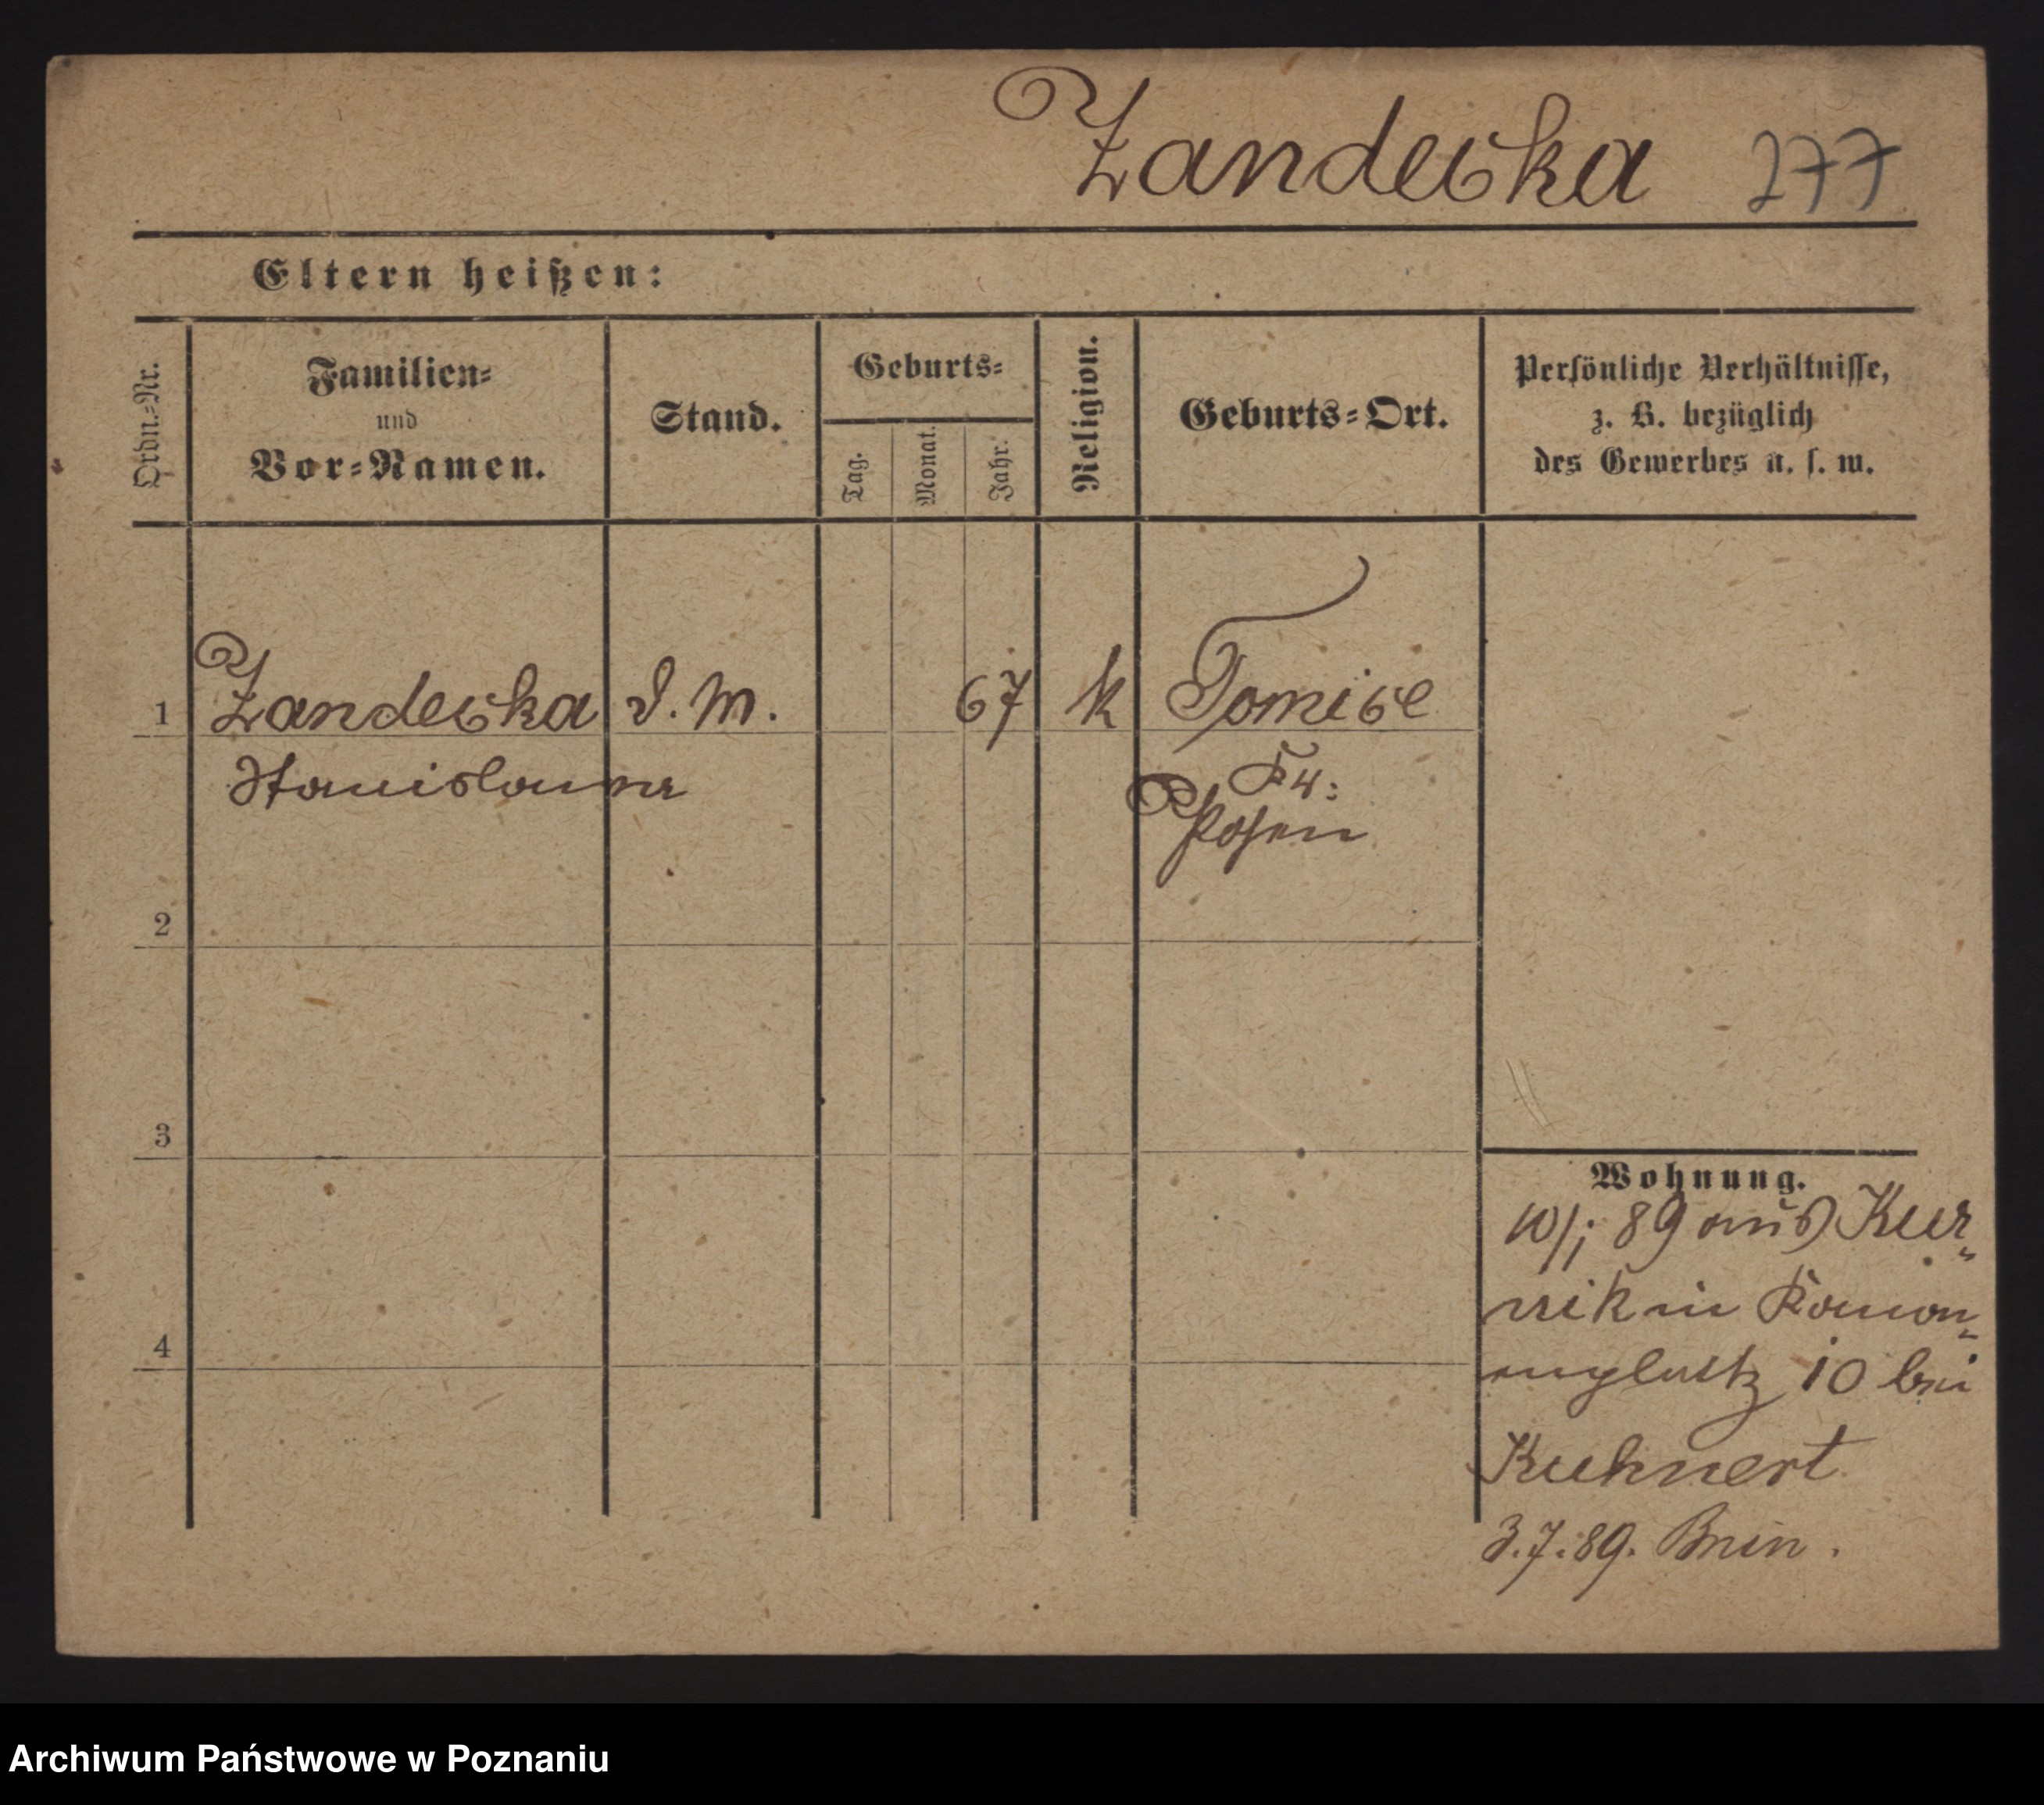 Zandecka 277
Eltern heißen:
Ordn.-Nr.
Familien-
und
Vor-Namen.
Stand.
Geburts-
Tag.
Monat.
Jahr.
Religion.
Geburts-Ort.
Persönliche Verhältnisse,
z. B. bezüglich
des Gewerbes u. s. w.
1 Zandecka D. M. 67 k Tomice
Stanislawa Kr:
Posen
2
3
4
Wohnung.
89 aus Kur-
nik in Kanon-
enplatz 10 bei
Kuhnert
3.7.89. Bnin.
Archiwum Państwowe w Poznaniu